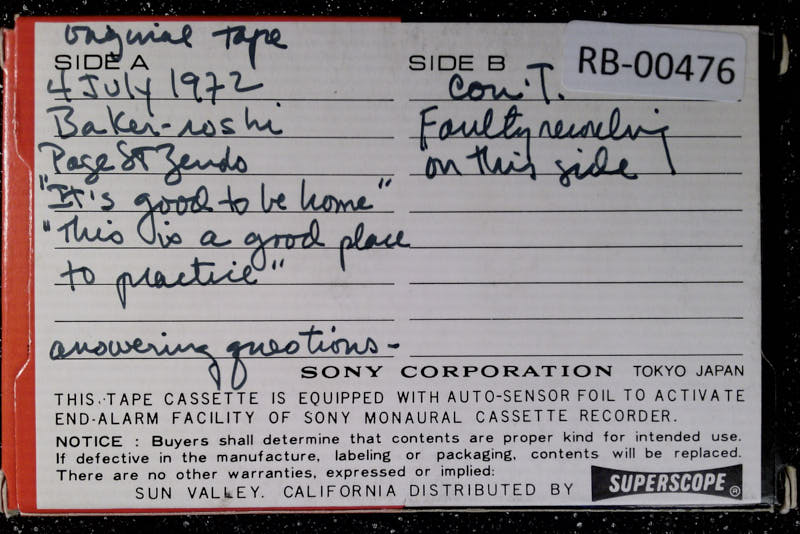 original tape
SIDE A
4 July 1972
Baker-roshi
Page St Zendo
"It's good to be home"
"This is a good place
to practice"
answering questions-
SIDE B
RB-00476
Con'T.
Faulty recording
on this side
SONY CORPORATION TOKYO JAPAN
THIS TAPE CASSETTE IS EQUIPPED WITH AUTO-SENSOR FOIL TO ACTIVATE
END-ALARM FACILITY OF SONY MONAURAL CASSETTE RECORDER.
NOTICE : Buyers shall determine that contents are proper kind for intended use.
If defective in the manufacture, labeling or packaging, contents will be replaced.
There are no other warranties, expressed or implied:
SUN VALLEY. CALIFORNIA DISTRIBUTED BY SUPERSCOPE®